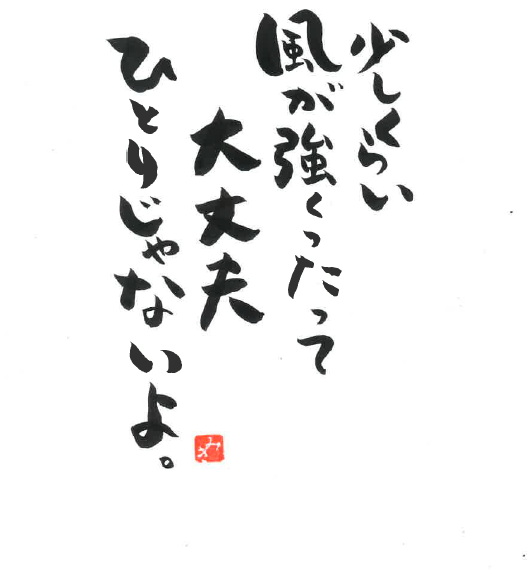 少しくらい
風が強くったって
大丈夫
ひとりじゃないよ。